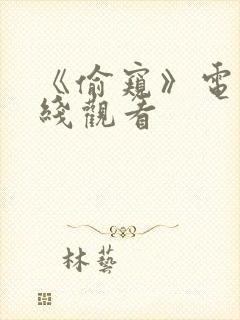 《偷窺》電
綫觀看
林藝